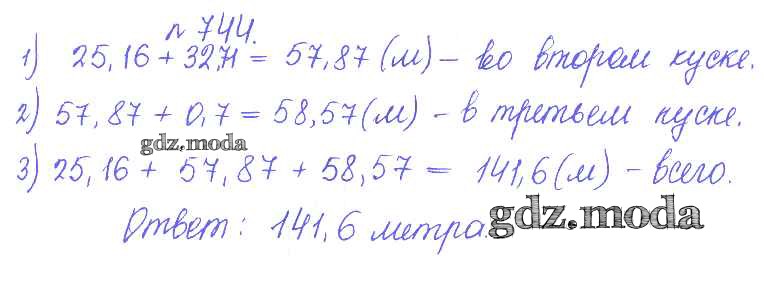 n 744.
1) 25,16 + 32,71 = 57,87 (м) - во втором куске.
2) 57,87 + 0,7 = 58,57 (м) - в третьем куске.
gdz.moda
3) 25,16 + 57,87 + 58,57 = 141,6 (м) - всего.
Ответ: 141,6 метра.
gdz.moda